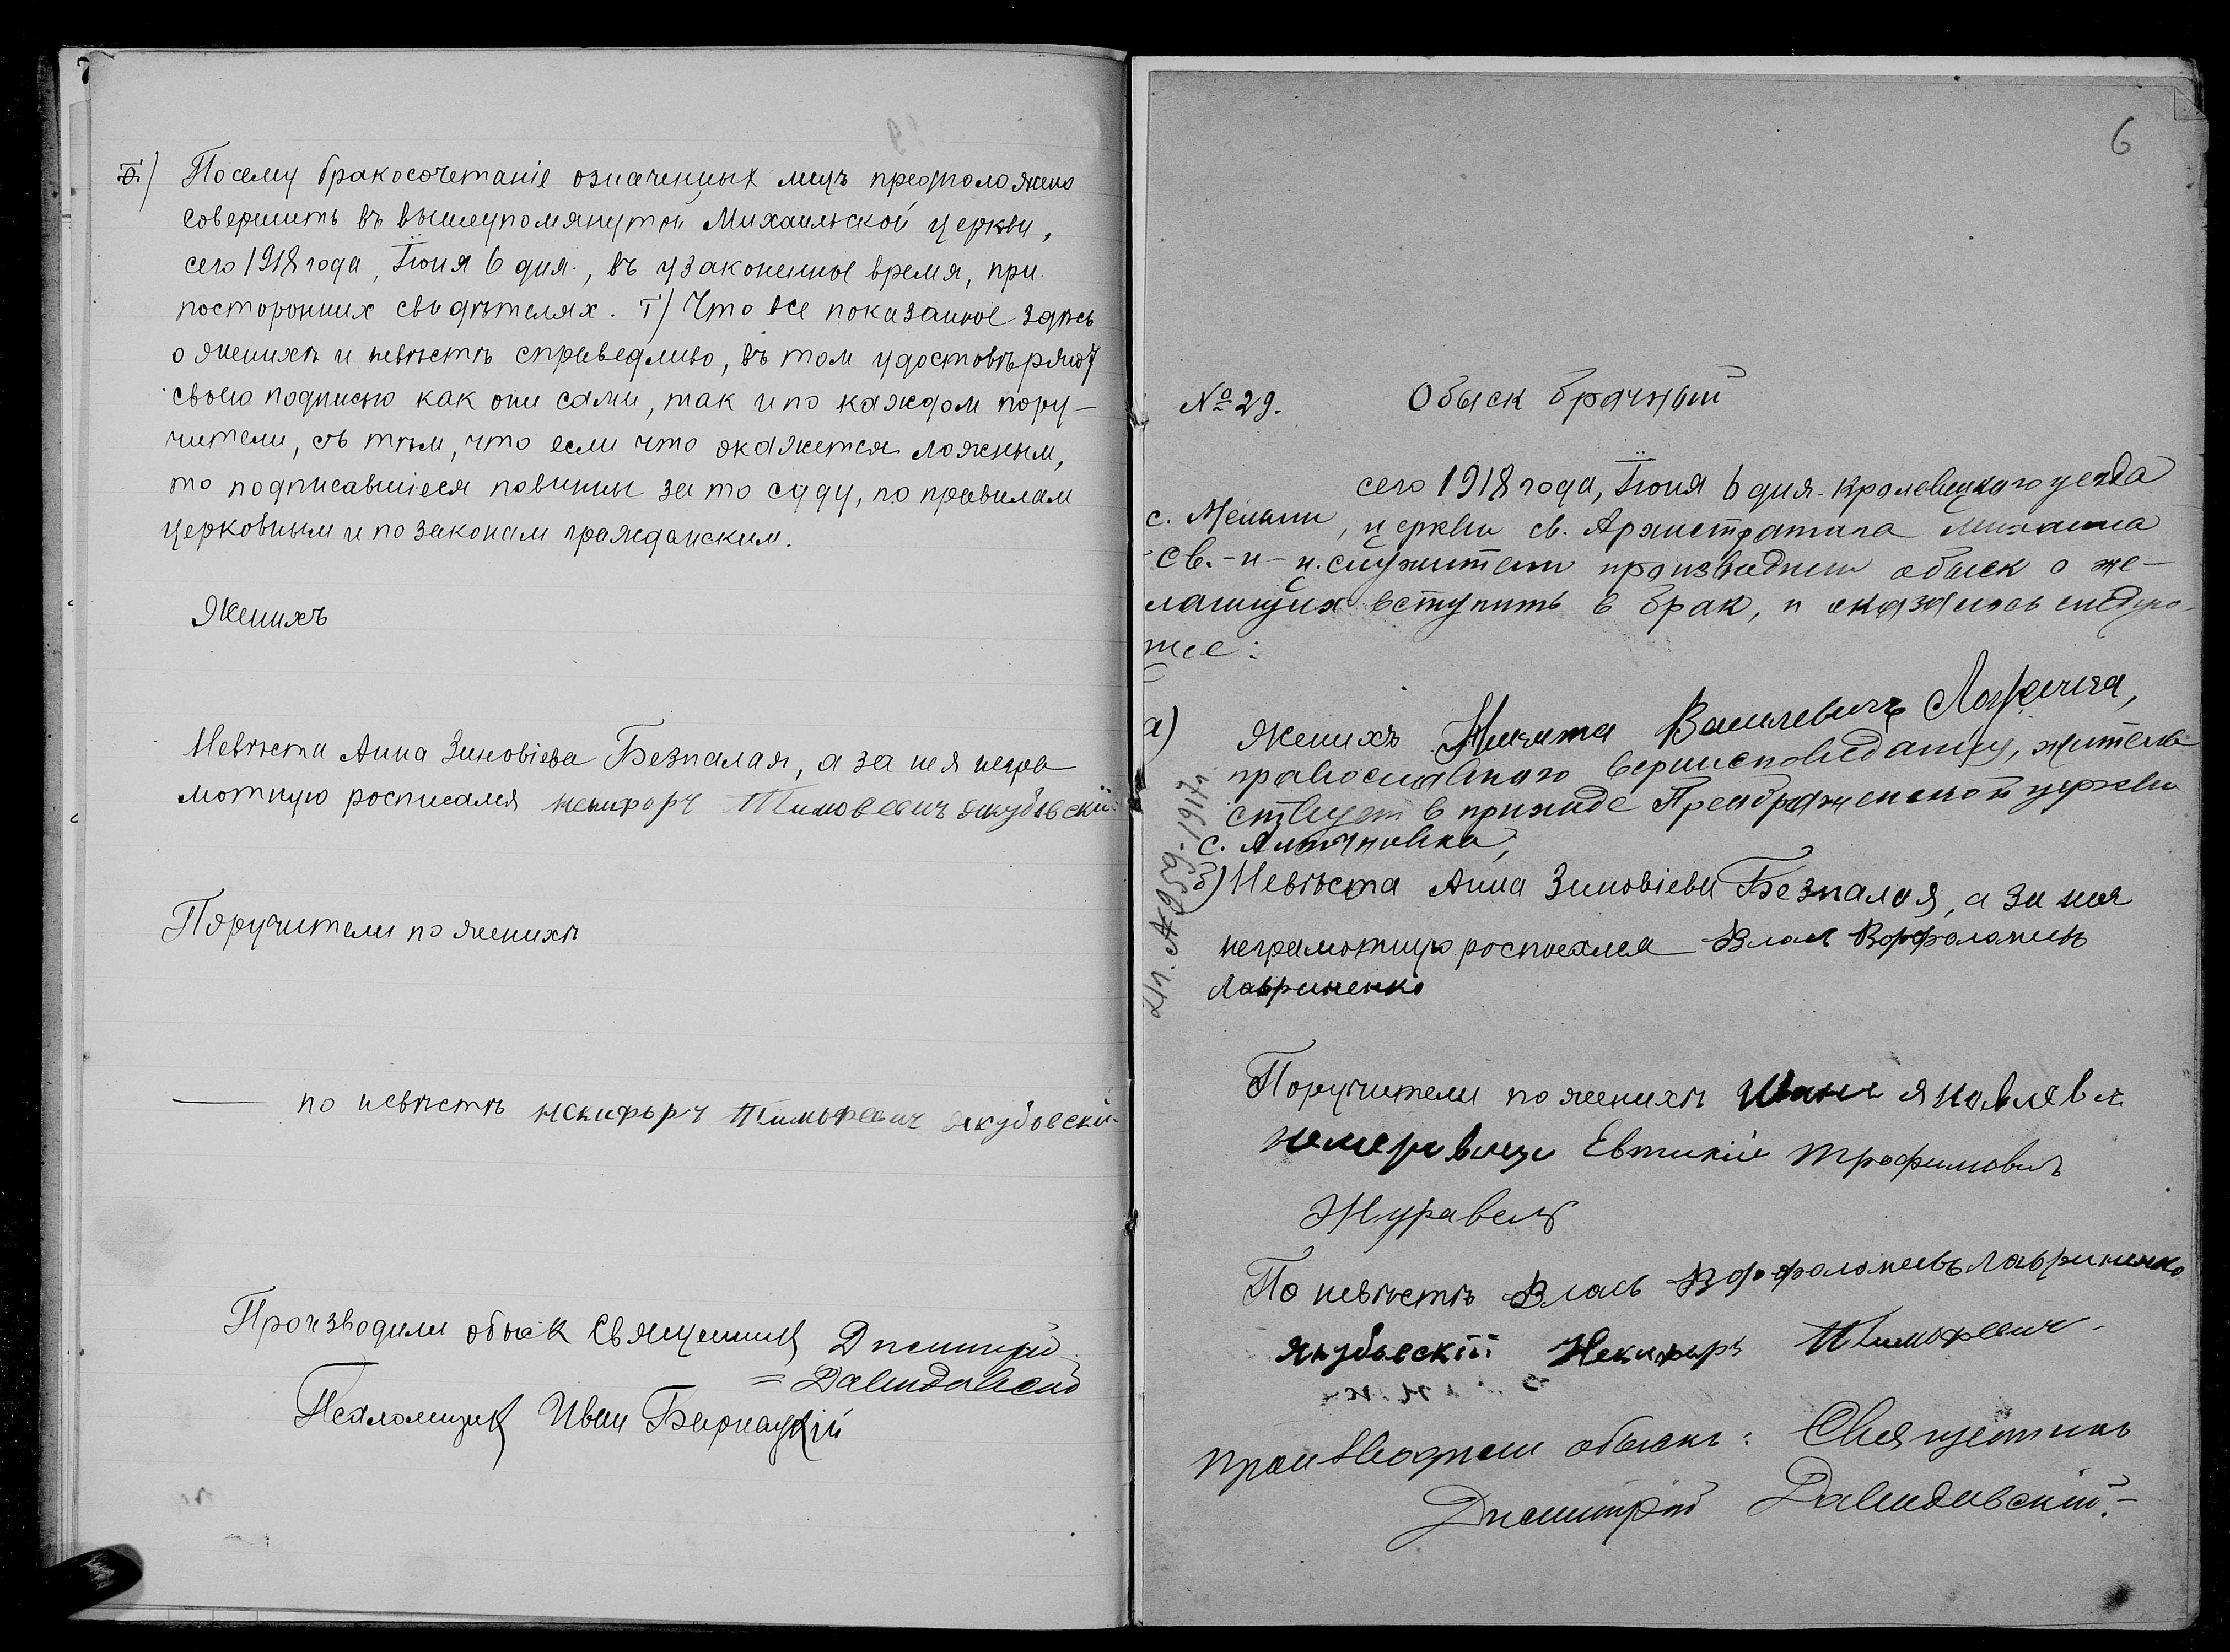 Ѳ) Посему бракосочетаніе означенных лицъ предположено
совершить въ вышеупомянутой Михаильской церкви,
сего 1918 года, Іюня 6 дня., въ узаконенное время, при
посторонних свидѣтелях. І) Что все показанное здѣсь
о женихѣ и невѣстѣ справедливо, въ том удостовѣряют
своею подписью как они сами, так и по каждом пору-
чители, съ тѣм, что если что окажется ложным,
то подписавшіеся повинны за то суду, по правилам
церковным и по законам гражданским.
Женихъ
Невѣста Анна Зиновіева Безпалая, а за нея негра
мотную росписался Некифоръ Тимовеевичъ Якубовскій
Поручители по женихѣ
по невѣстѣ Некифоръ Тимофеевич Якубовскій
Производили обыск Священник Димитрій
= Давидовский
Псаломщик Иван Бернацкій
6
№ 29. Обыск брачный
сего 1918 года, Іюня 6 дня. Кролевецкаго уезда
с. , церкви св. Архистратига Михаила
св.-и-ц.служители производили обыск о же-
лающих вступить в брак, и оказалось следую-
щее:
а) Женихъ Никита Васильевичъ
православнаго вероисповедания, жительствует
в приходе Преображенской церкви
с.
б) Невѣста Анна Зиновіева Безпалая, а за нея
неграмотную росписался Влас Ворфоломеев
Лавриненко
1917 г.
Поручители по женихѣ Иван Яковлев
Евтихій Трофимовичъ
Журавель
По невѣстѣ Власъ Ворфоломеевъ Лавриненко
Якубовскій Некифоръ Тимофеевич
производили обыскъ: Священникъ
Димитрій Давидовскій.-